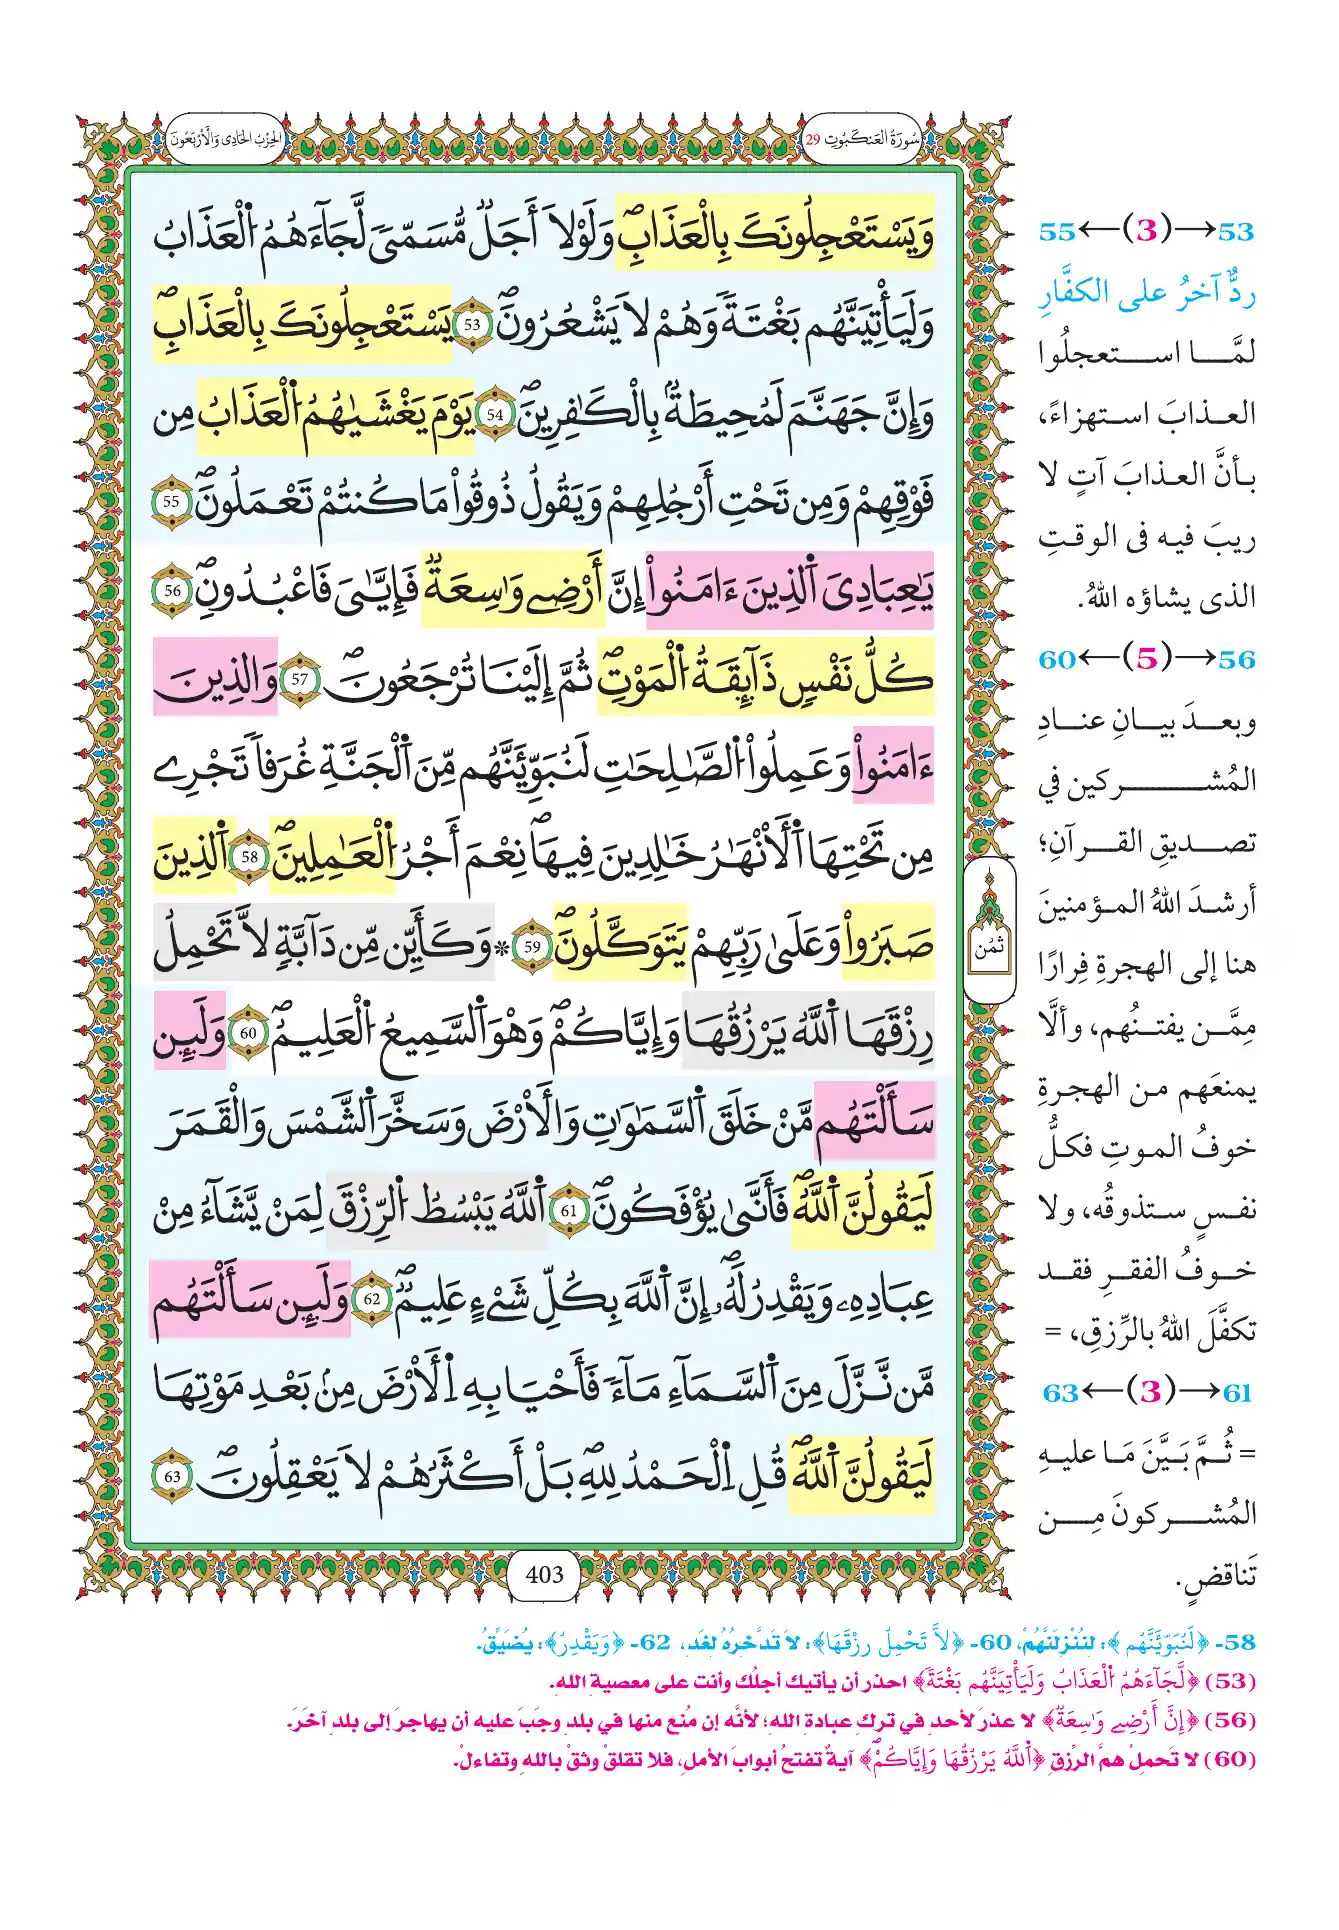 سُورَةُ العَنكَبُوتِ 29
الحِزْبُ الحَادِى وَالأَرْبَعُونَ
وَيَسْتَعْجِلُونَكَ بِالْعَذَابِۖ وَلَوْلَا أَجَلٌ مُّسَمّيٗ لَّجَآءَهُمُ اُلْعَذَابُ
وَلَيَأْتِيَنَّهُم بَغْتَةٗ وَهُمْ لَا يَشْعُرُونَۖ 53 يَسْتَعْجِلُونَكَ بِالْعَذَابِۖ
وَإِنَّ جَهَنَّمَ لَمُحِيطَةُۢ بِالْكَٰفِرِينَۖ 54 يَوْمَ يَغْشَيٰهُمُ اُلْعَذَابُ مِن
فَوْقِهِمْ وَمِن تَحْتِ أَرْجُلِهِمْ وَيَقُولُ ذُوقُواْ مَا كُنتُمْ تَعْمَلُونَۖ 55
يَٰعِبَادِىَ اَلذِينَ ءَامَنُواْ إِنَّ أَرْضِے وَٰسِعَةٞۖ فَإِيَّٰىَ فَاعْبُدُونِۖ 56
كُلُّ نَفْسٖ ذَآئِقَةُ اُلْمَوْتِۖ ثُمَّ إِلَيْنَا تُرْجَعُونَۖ 57 وَالذِينَ
ءَامَنُواْ وَعَمِلُواْ اُلصَّٰلِحَٰتِ لَنُبَوِّئَنَّهُم مِّنَ اَلْجَنَّةِ غُرَفاٗ تَجْرِے
مِن تَحْتِهَا اَلْأَنْهَٰرُ خَٰلِدِينَ فِيهَاۖ نِعْمَ أَجْرُ اُلْعَٰمِلِينَۖ 58 اَلذِينَ
صَبَرُواْ وَعَلَىٰ رَبِّهِمْ يَتَوَكَّلُونَۖ 59 * وَكَأَيِّن مِّن دَآبَّةٖ لَّا تَحْمِلُ
رِزْقَهَا اَللَّهُ يَرْزُقُهَا وَإِيَّاكُمْۖ وَهْوَ اَلسَّمِيعُ اُلْعَلِيمُۖ 60 وَلَئِن
سَأَلْتَهُم مَّنْ خَلَقَ اَلسَّمَٰوَٰتِ وَالْأَرْضَ وَسَخَّرَ اَلشَّمْسَ وَالْقَمَرَ
لَيَقُولُنَّ اَللَّهُۖ فَأَنَّىٰ يُؤْفَكُونَۖ 61 اَللَّهُ يَبْسُطُ اُلرِّزْقَ لِمَنْ يَّشَآءُ مِنْ
عِبَادِهِۦ وَيَقْدِرُ لَهُۥۖ إِنَّ اَللَّهَ بِكُلِّ شَےْءٍ عَلِيمٞۖ 62 وَلَئِن سَأَلْتَهُم
مَّن نَّزَّلَ مِنَ اَلسَّمَآءِ مَآءٗ فَأَحْيَا بِهِ اِلْأَرْضَ مِنۢ بَعْدِ مَوْتِهَا
لَيَقُولُنَّ اَللَّهُۖ قُلِ اِلْحَمْدُ لِلهِۖ بَلْ أَكْثَرُهُمْ لَا يَعْقِلُونَۖ 63
ثمُن
403
53→(3)←55
ردٌّ آخرُ على الكفَّارِ
لمَّا استعجلُوا
العذابَ استهزاءً،
بأنَّ العذابَ آتٍ لا
ريبَ فيه فى الوقتِ
الذى يشاؤه اللهُ.
56→(5)←60
وبعدَ بيانِ عنادِ
المُشركين في
تصديقِ القرآنِ؛
أرشدَ اللهُ المؤمنينَ
هنا إلى الهجرةِ فِرارًا
مِمَّن يفتنُهم، وألَّا
يمنعَهم من الهجرةِ
خوفُ الموتِ فكلُّ
نفسٍ ستذوقُه، ولا
خوفُ الفقرِ فقد
تكفَّلَ اللهُ بالرِّزقِ، =
61→(3)←63
= ثُمَّ بَيَّنَ مَا عليهِ
المُشركونَ مِن
تَناقضٍ.
58- ﴿لَنُبَوِّئَنَّهُم﴾: لنُنْزِلَنَّهُمْ، 60- ﴿لَّا تَحْمِلُ رِزْقَهَا﴾: لا تَدَّخِرُهُ لغَدٍ، 62- ﴿وَيَقْدِرُ﴾: يُضَيِّقُ.
(53) ﴿لَّجَآءَهُمُ اُلْعَذَابُ وَلَيَأْتِيَنَّهُم بَغْتَةٗ﴾ احذر أن يأتيك أجلُك وأنت على معصيةِ اللهِ.
(56) ﴿إِنَّ أَرْضِے وَٰسِعَةٞ﴾ لا عذرَ لأحدٍ في تركِ عبادةِ اللهِ؛ لأنَّه إن مُنع منها في بلدٍ وجَبَ عليه أن يهاجرَ إلى بلدٍ آخرَ.
(60) لا تَحملْ همَّ الرِّزقِ ﴿اَللَّهُ يَرْزُقُهَا وَإِيَّاكُمْۖ﴾ آيةٌ تفتحُ أبوابَ الأملِ، فلا تقلقْ وثقْ باللهِ وتفاءلْ.